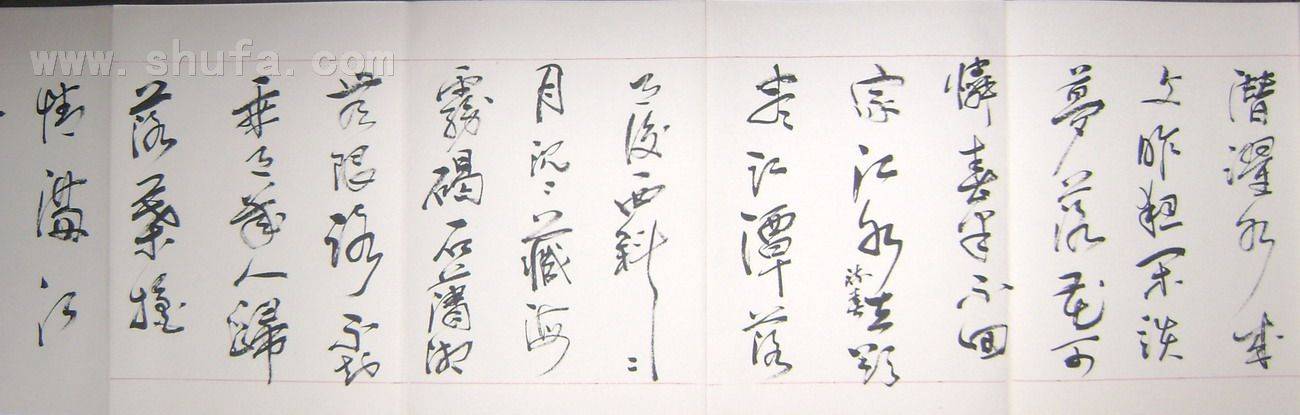 潛躍水成
文昨夜閑談
夢落花可
憐春半不回
家江水流春去欲
盡江潭落
月復西斜〻
月沉〻藏海
霧碣石瀟湘
無限路不知
乘月幾人歸
落葉搖
情滿江
www.shufa.com